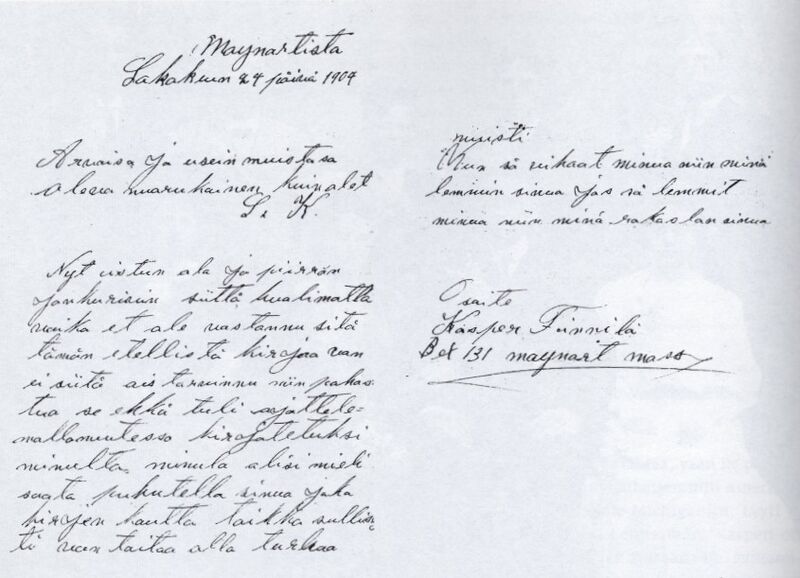 Maynartista
Lokakuun 24 päivä 1904
Arvaisa ja usein muistasa
oleva nuorukainen kuin olet
L. K.
Nyt istun ala ja piirrän
jonkurisiin siittä huolimatta
vaika et ole vastannu sitä
tämän etellistä kirjaa van
ei siitä ais tarvinnu niin pahas
tua se ehkä tuli ajattele=
mattomutessa kirjotetuksi
minulta, minula olisi mieli
saata puhutella sinua joka
kirjen kautta taikka sullis
ti van taitaa olla turhaa
muisti
Kun sä vihaat minua niin minä
lemmin sinua jos sä lemmit
minua niin minä rakastan sinua
Osoite
Kasper Finnilä
Box 131 maynart mass